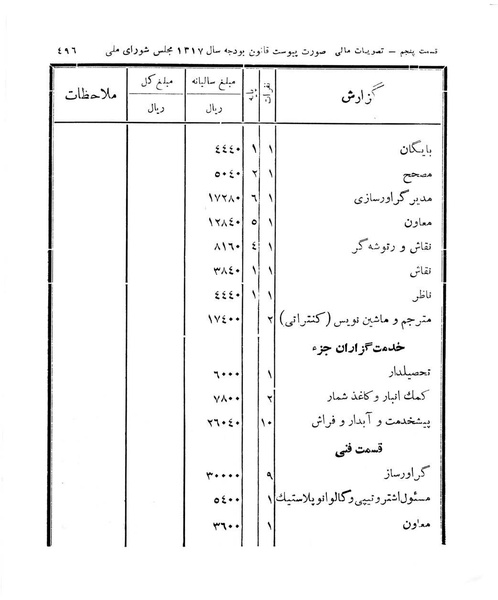 قسمت پنجم – تصویبات مالی صورت پیوست قانون بودجه سال ۱۳۱۷ مجلس شورای ملی ٤٩٦
گزارش نفرات پایه مبلغ سالیانه ریال مبلغ کل ریال ملاحظات
بایگان ۱ ۱ ٤٤٤۰
مصحح ۱ ۲ ٥۰٤۰
مدیر گراورسازی ۱ ٦ ۱۷۲۸۰
معاون ۱ ٥ ۱۲۸٤۰
نقاش و رتوشه‌گر ۱ ٤ ۸۱٦۰
نقاش ۱ ۱ ۳۸٤۰
ناظر ۱ ۱ ٤٤٤۰
مترجم و ماشین نویس (کنتراتی) ۲ ۱۷٤۰۰
خدمت‌گزاران جزء
تحصیلدار ۱ ٦۰۰۰
کمك انبار و کاغذ شمار ۲ ۷۸۰۰
پیشخدمت و آبدار و فراش ۱۰ ۲٦۰٤۰
قسمت فنی
گراورساز ۹ ۳۰۰۰۰
مسئول اشتروتیپی و گالوانوپلاستیك ۱ ٥٤۰۰
معاون ۱ ۳٦۰۰